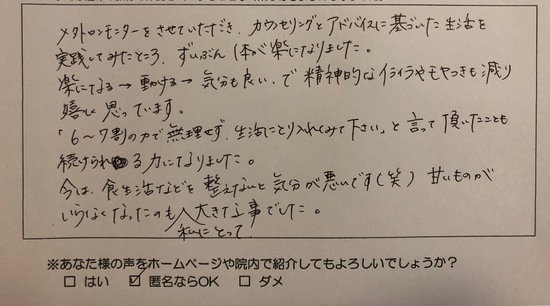 メタトロンモニターをさせていただき、カウンセリングとアドバイスに基づいた生活を
実践してみたところ、ずいぶん体が楽になりました。
楽になる→動ける→気分も良い、で精神的なイライラやモヤつきも減り
嬉しく思っています。
「6〜7割の力で無理せず、生活にとり入れてみて下さい」と言って頂いたことも
続けられる力になりました。
今は、食生活などを整えないと気分が悪いです(笑) 甘いものが
いらなくなったのも 大きな工事でした。
私にとって
※あなた様の声をホームページや院内で紹介してもよろしいでしょうか?
□ はい ☑ 匿名ならOK □ ダメ